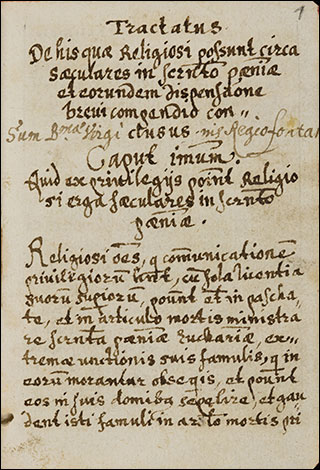 1
Tractatus.
De his quæ Religiosi possunt circa
sæculares in scrnto pæniæ
et eorundem dispensatione
brevi compendio con-
Sum Bmæ Virgi clusus
Caput imum.
Quid ex privilegijs possint Religio
si erga sæculares in scrnto
pæniæ.
Religiosi oēs, q comunicationē
privilegiorum cū sola licentia
suorū supiorū, possunt et in pascha-
te, et in articulo mortis ministra
re scrnta pæniæ Euchariæ, ex-
tremæ unctionis suis famulis, q in
eorum morantur obseqis, et possunt
eos in suis domibus sepelire, et gau
dent isti famuli in artlo mortis pri